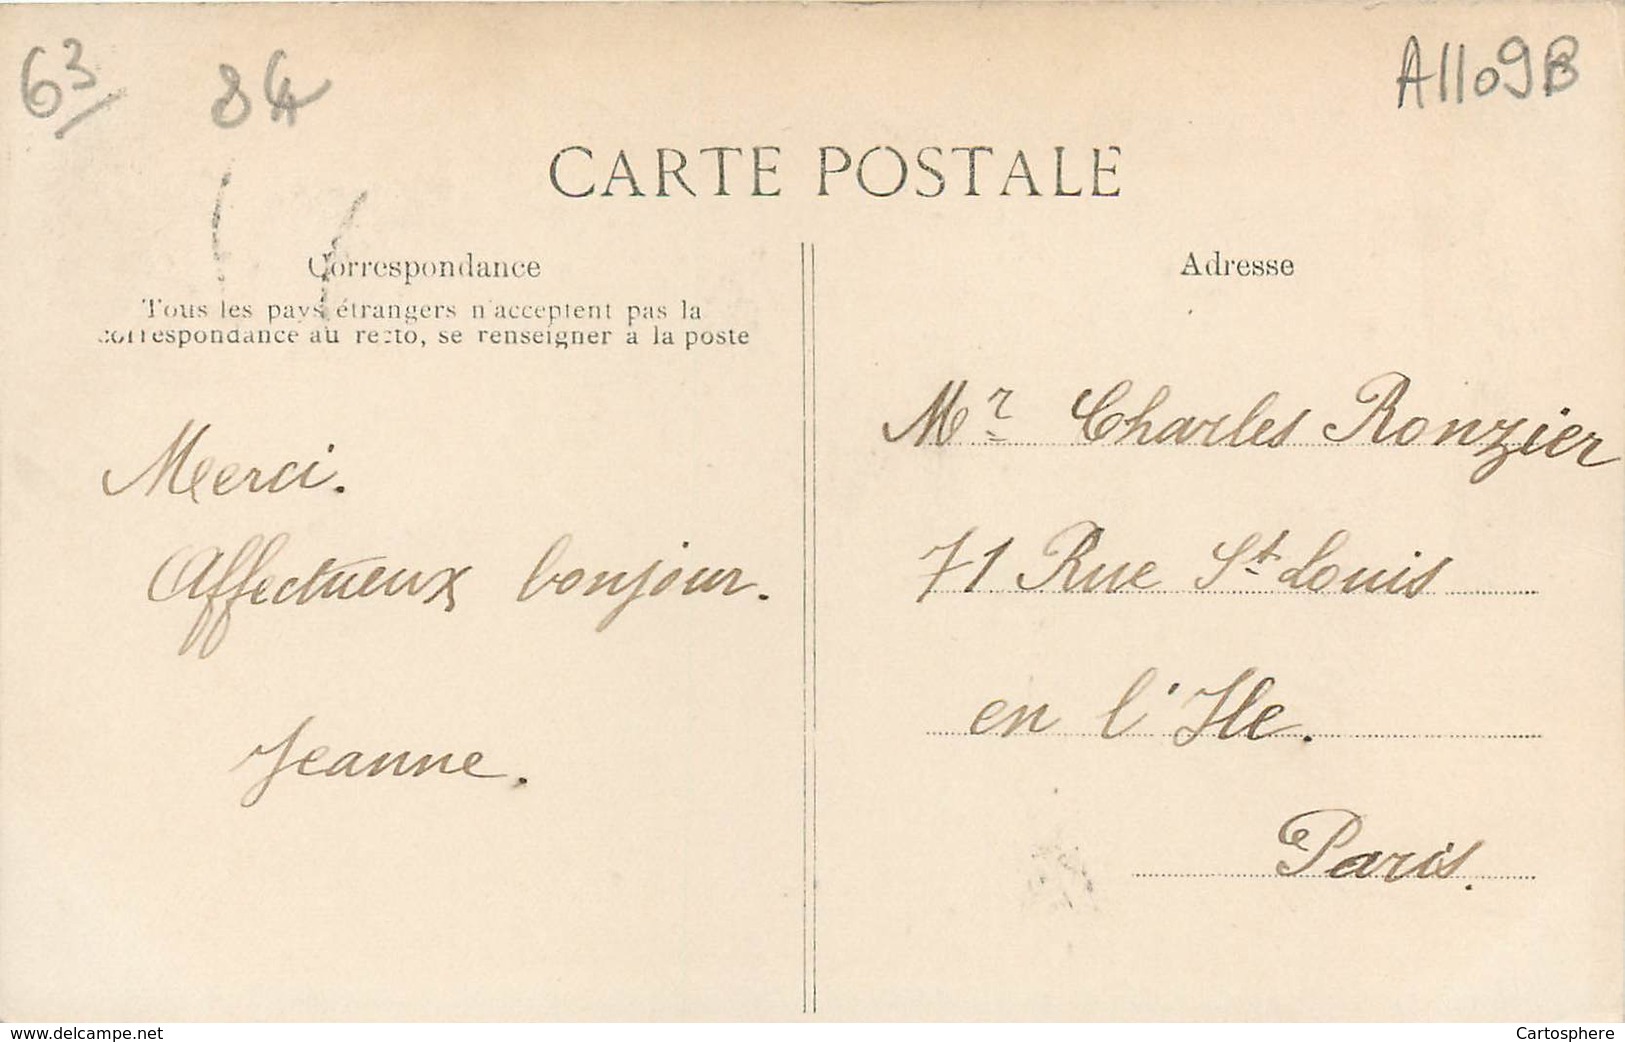 63
84
A1109B
CARTE POSTALE
Correspondance
Tous les pays étrangers n'acceptent pas la
correspondance au recto, se renseigner à la poste
Merci.
Affectueux bonjour.
Jeanne.
Adresse
Mr Charles Ronzier
71 Rue St Louis
en l'Ile.
Paris.
www.delcampe.net
Cartosphere